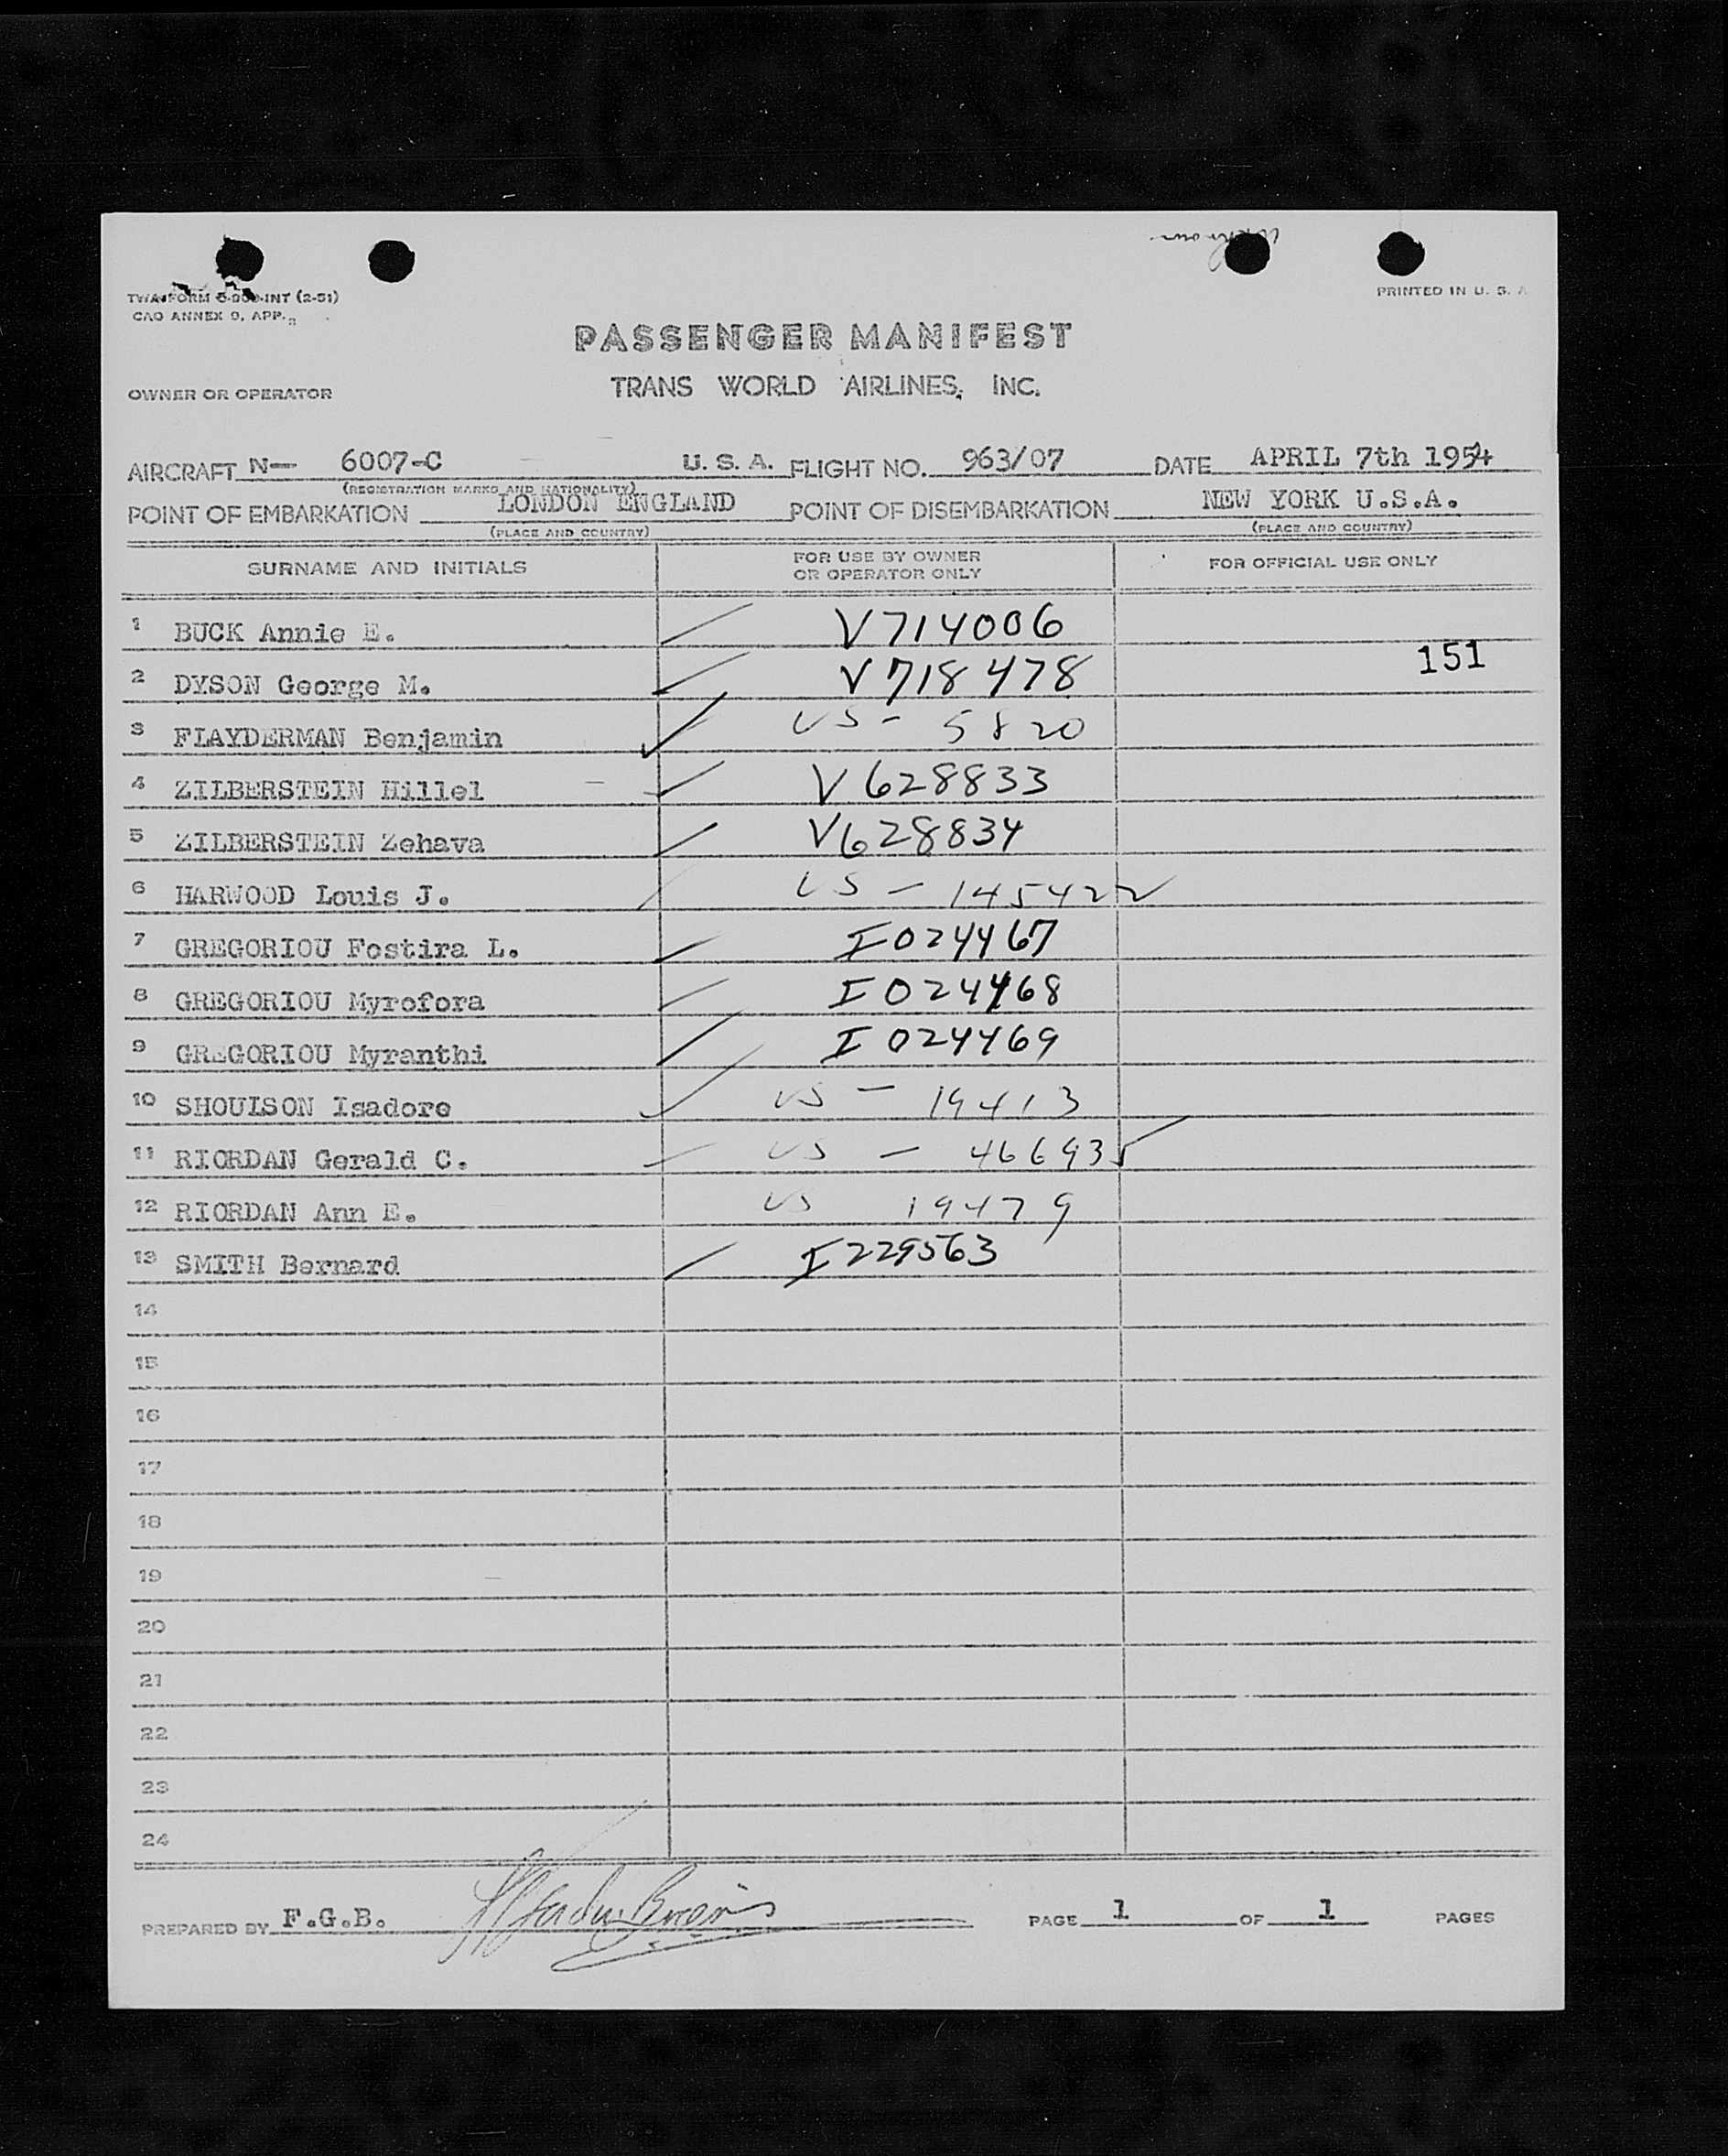 TWA FORM INT (2-51)
PRINTED IN U. S. A
CAO ANNEX 9, APP.
PASSENGER MANIFEST
OWNER OR OPERATOR
TRANS WORLD AIRLINES, INC.
AIRCRAFT N— 6007-C U. S. A. FLIGHT NO. 963/07 DATE APRIL 7th 1954
(REGISTRATION MARKS AND NATIONALITY)
POINT OF EMBARKATION LONDON ENGLAND POINT OF DISEMBARKATION NEW YORK U.S.A.
(PLACE AND COUNTRY) (PLACE AND COUNTRY)
SURNAME AND INITIALS FOR USE BY OWNER OR OPERATOR ONLY FOR OFFICIAL USE ONLY
1 BUCK Annie E. V714006
151
2 DYSON George M. V718478
3 FLAYDERMAN Benjamin US - 5820
4 ZILBERSTEIN Hillel V628833
5 ZILBERSTEIN Zehava V628834
6 HARWOOD Louis J. US - 145422
7 GREGORIOU Fostira L. I024467
8 GREGORIOU Myrofora I024468
9 GREGORIOU Myranthi I024469
10 SHOULSON Isadore US - 19413
11 RIORDAN Gerald C. US - 466935
12 RIORDAN Ann E. US 19479
13 SMITH Bernard I229563
14
15
16
17
18
19
20
21
22
23
24
PREPARED BY F.G.B. PAGE 1 OF 1 PAGES